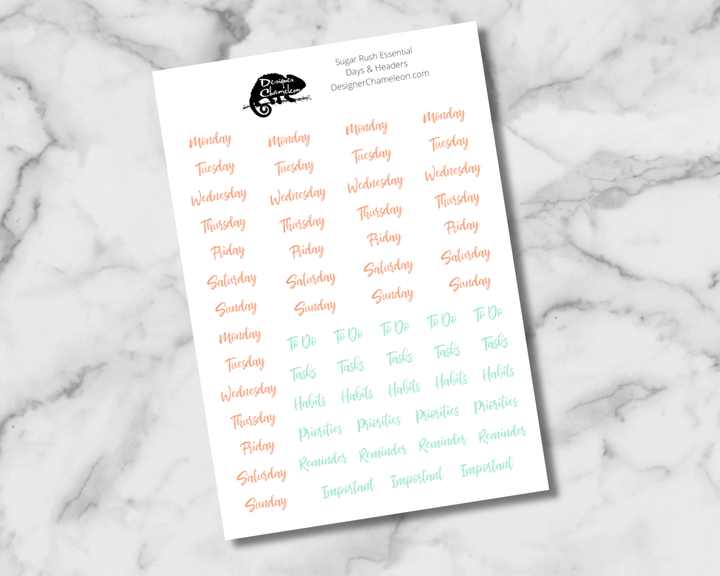 Designer
Chameleon
Sugar Rush Essential
Days & Headers
DesignerChameleon.com
Monday Monday Monday Monday
Tuesday Tuesday Tuesday Tuesday
Wednesday Wednesday Wednesday Wednesday
Thursday Thursday Thursday Thursday
Friday Friday Friday Friday
Saturday Saturday Saturday Saturday
Sunday Sunday Sunday Sunday
Monday To Do To Do To Do To Do To Do
Tuesday Tasks Tasks Tasks Tasks Tasks
Wednesday Habits Habits Habits Habits Habits
Thursday Priorities Priorities Priorities Priorities
Friday Reminder Reminder Reminder Reminder
Saturday Important Important Important
Sunday